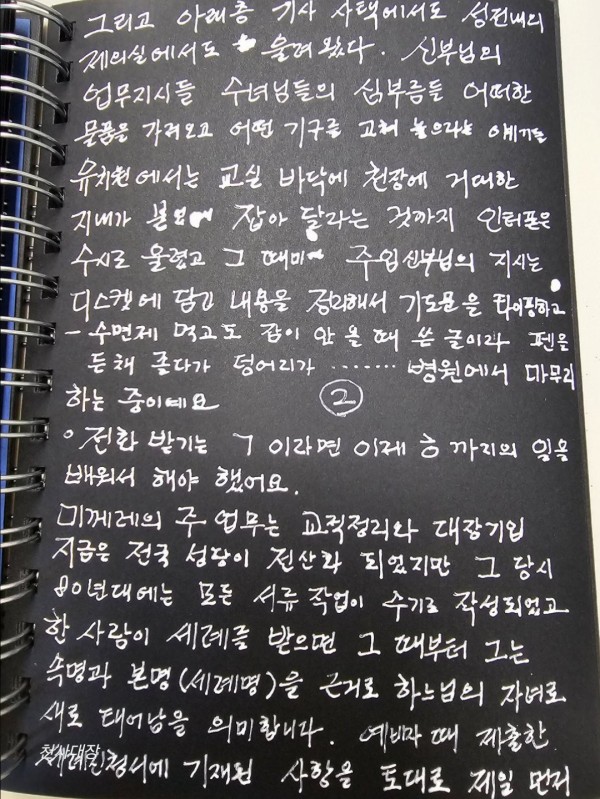 그리고 아래층 기사 사택에서도 성전내의
제의실에서도 울려왔다. 신부님의
업무지시들 수녀님들의 심부름들 어떠한
물품을 가져오고 어떤 기구를 고쳐 놓으라는 얘기들
유치원에서는 교실 바닥에 천장에 거대한
지네가 잡아 달라는 것까지 인터폰은
수시로 울렸고 그 때마 주임신부님의 지시는
디스켓에 담긴 내용을 정리해서 기도문을 타이핑하고
- 수면제 먹고도 잠이 안 올 때 쓴 글이라 펜을
든채 졸다가 덩어리가 ........ 병원에서 마무리
하는 중이예요 ②
전화 받기는 ㄱ 이라면 이제 ㅎ 까지의 일을
배워서 해야 했어요.
미께레의 주 업무는 교적정리와 대장기입
지금은 전국 성당이 전산화 되었지만 그 당시
80년대에는 모든 서류 작업이 수기로 작성되었고
한 사람이 세례를 받으면 그 때부터 그는
속명과 본명(세례명)을 근거로 하느님의 자녀로
새로 태어남을 의미합니다. 예비자 때 제출한
청서에 기재된 사항을 토대로 제일 먼저